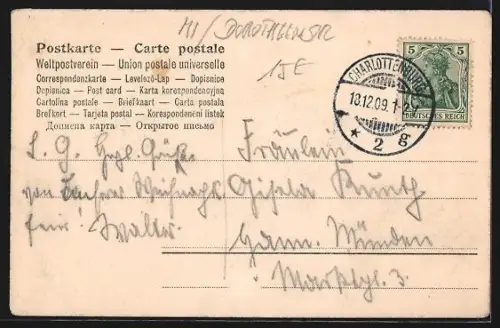 MI/DOROTHEENSTR
15E
Postkarte — Carte postale
Weltpostverein — Union postale universelle
Correspondenzkarte — Levelező-Lap — Dopisnice
Dopisnica — Post card — Karta korespondencyjna
Cartolina postale — Briefkaart — Carta postala
Brefkort — Tarjeta postal — Korespondenčni lístek
Дописна карта — Открытое письмо
CHARLOTTENBURG
18.12.09. 1-2
* 2 g
5 5
DEUTSCHES REICH
L. G. Herzl. Grüße
von unserer Weihnachts
feier Walter.
Fräulein
Gisela Kunth
Hann. Münden
Marktpl. 3.